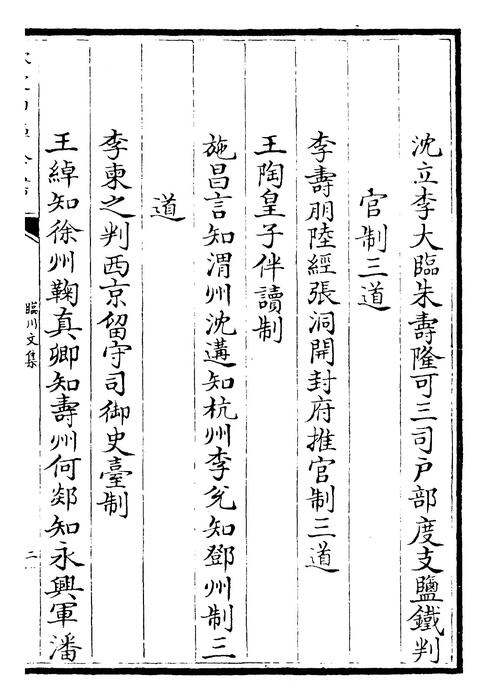 沈立李大臨朱壽隆可三司戶部度支鹽鐵判
官制三道
李壽朋陸經張洞開封府推官制三道
王陶皇子伴讀制
施昌言知渭州沈遘知杭州李兊知鄧州制三
道
李柬之判西京留守司御史臺制
王綽知徐州鞠真卿知壽州何郯知永興軍潘
臨川文集
二